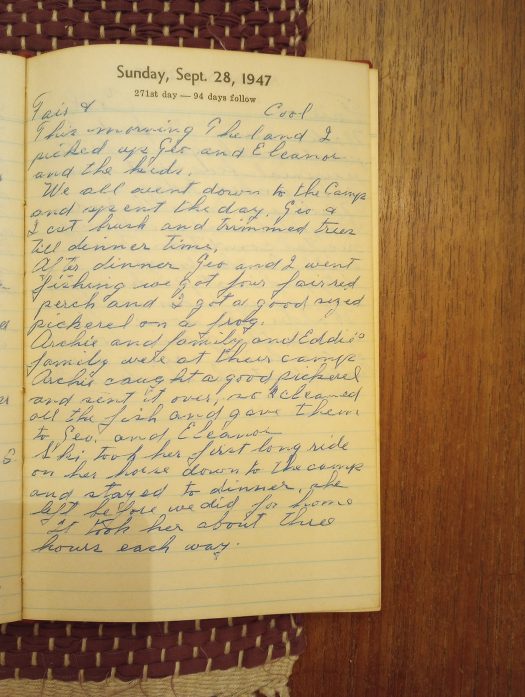 Sunday, Sept. 28, 1947
271st day — 94 days follow
Fair & Cool
This morning Thel and I
picked up Geo and Eleanor
and the kids.
We all went down to the Camp
and spent the day. Geo &
I cut brush and trimmed trees
till dinner time.
After dinner Geo and I went
fishing we got four fair red
perch and I got a good sized
pickerel on a frog.
Archie and family and Eddie's
family were at their camp
Archie caught a good pickerel
and sent it over, so I cleaned
all the fish and gave them
to Geo. and Eleanor
Shi, took her first long ride
on her horse down to the camp
and stayed to dinner, she
left before we did for home
It took her about three
hours each way.